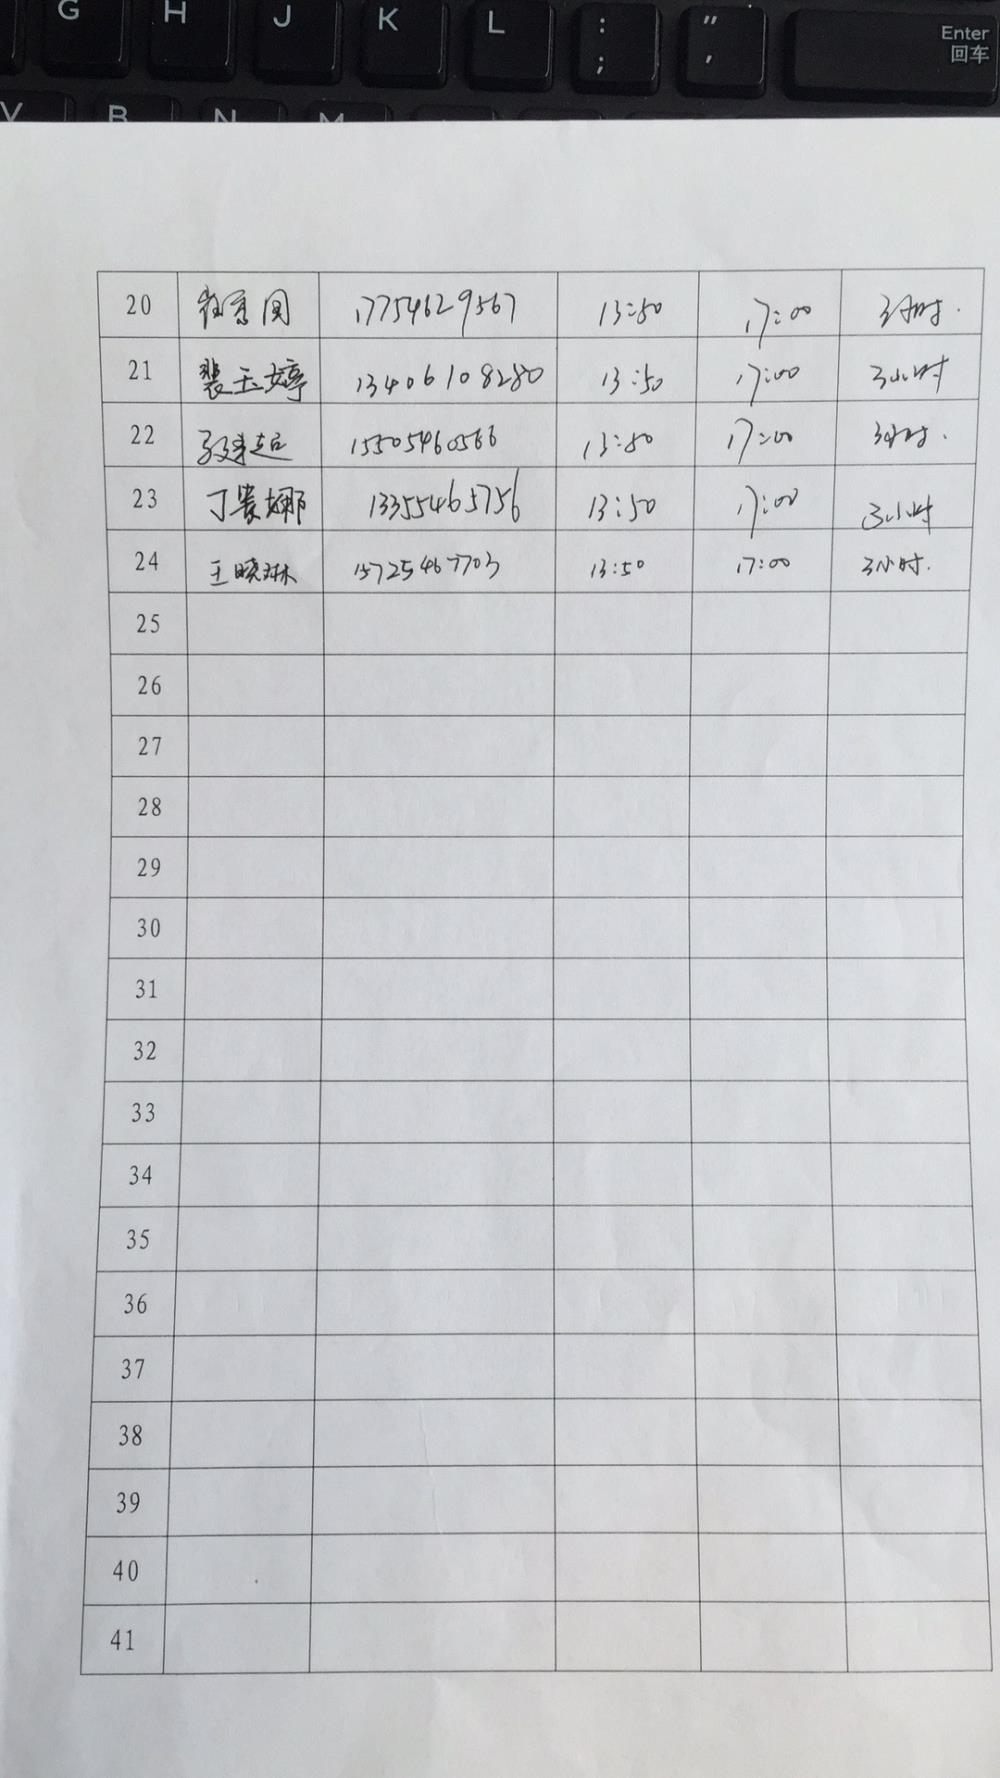 G H J K L : ; " , Enter 回车
V B N M
20 17754629567 13:50 17:00 3小时.
21 裴玉婷 13406108280 13:50 17:00 3小时
22 15505460566 13:50 17:00 3小时.
23 丁贵娜 13355465756 13:50 17:00 3小时
24 王晓琳 15725467703 13:50 17:00 3小时.
25
26
27
28
29
30
31
32
33
34
35
36
37
38
39
40
41